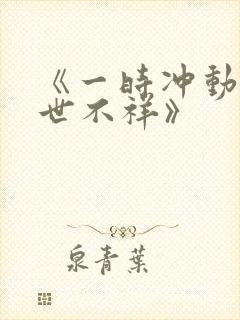 《一時冲動
世不祥》
泉青葉